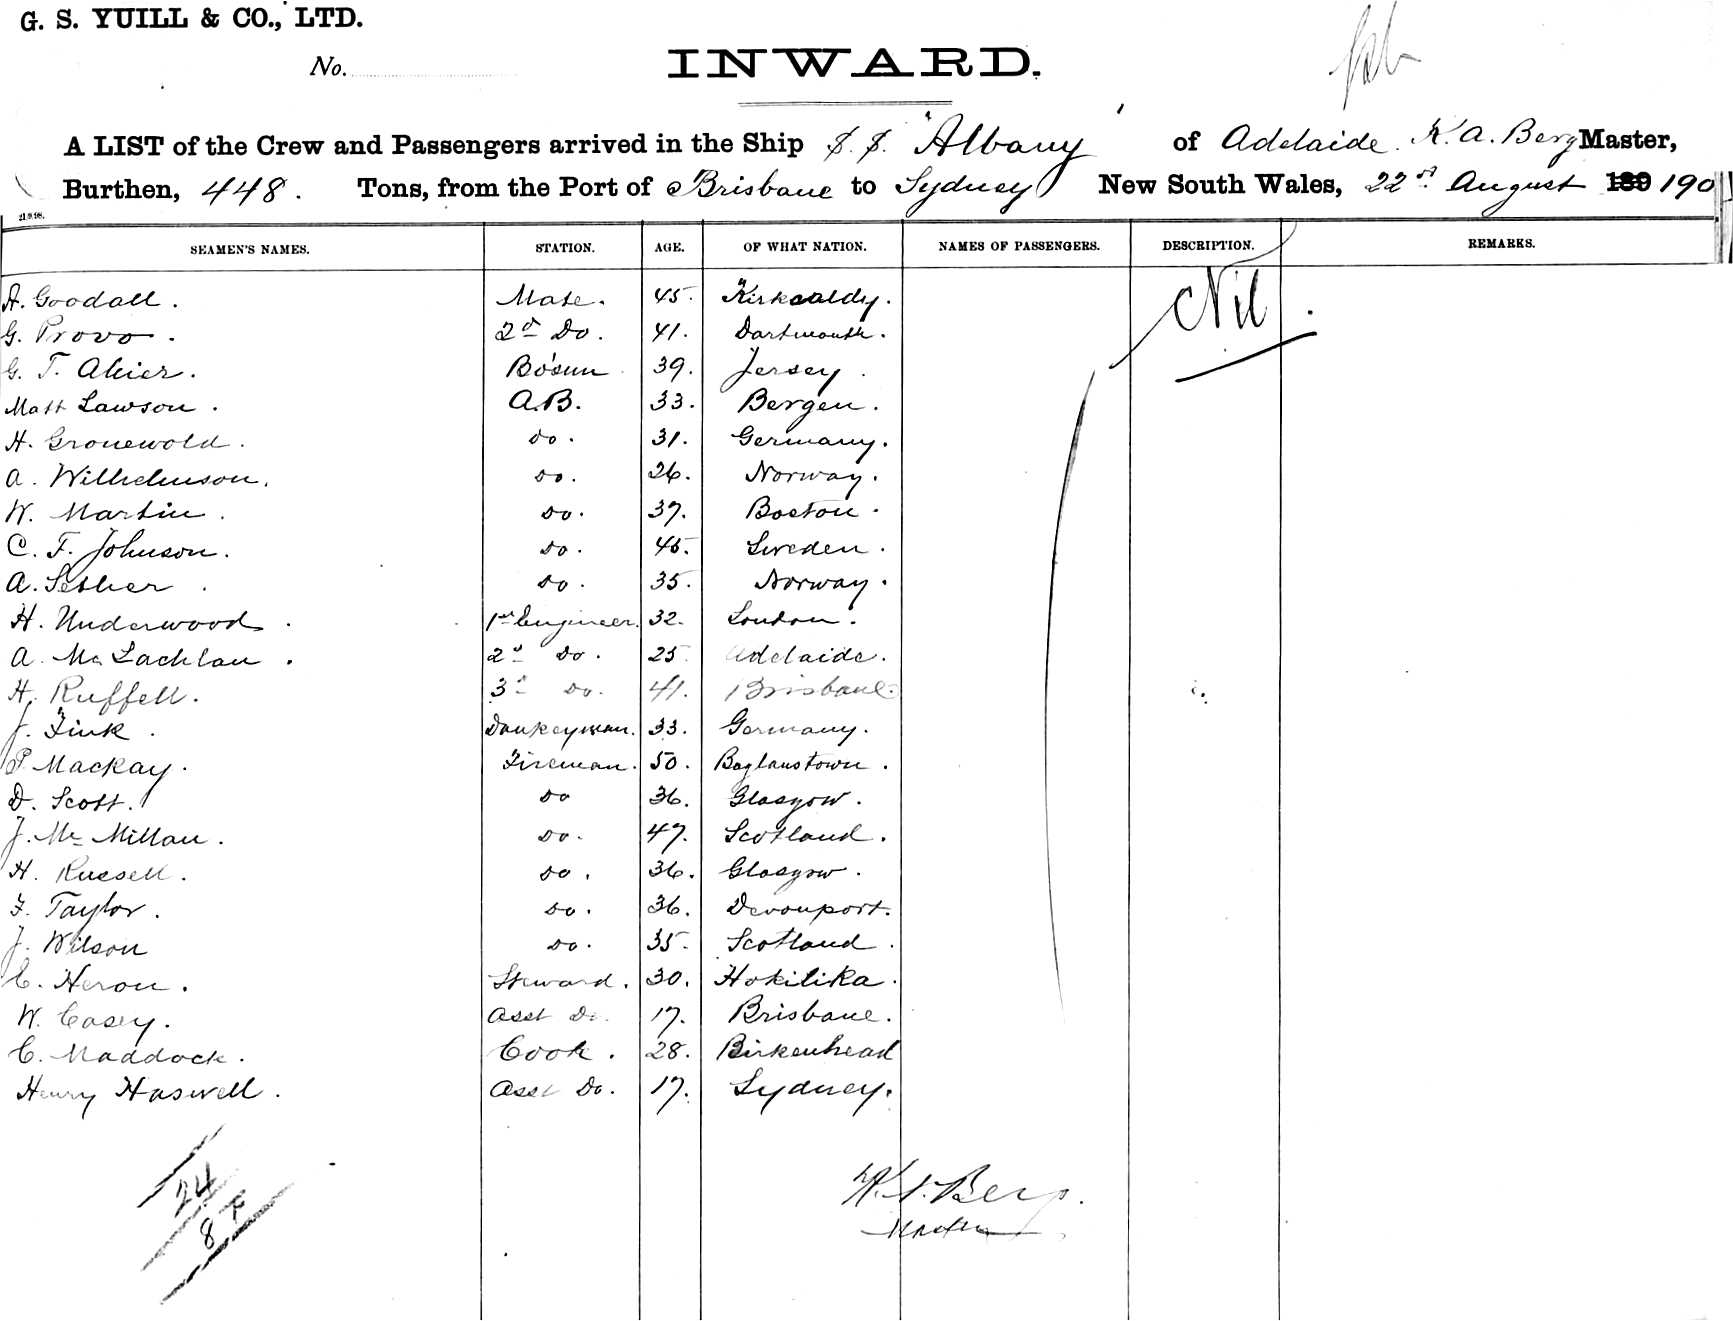 G. S. YUILL & CO., LTD.
No.
INWARD.
A LIST of the Crew and Passengers arrived in the Ship S.S. "Albany" of Adelaide. K. A. Berg Master,
Burthen, 448. Tons, from the Port of Brisbane to Sydney New South Wales, 22nd August 189 190
21.9.98.
SEAMEN'S NAMES. STATION. AGE. OF WHAT NATION. NAMES OF PASSENGERS. DESCRIPTION. REMARKS.
A. Goodall. Mate. 45. Kirkcaldy. Nil.
G. Provo. 2d Do. 41. Dartmouth.
G. T. Ahier. Bo'sun 39. Jersey.
Matt Lawson. A.B. 33. Bergen.
H. Gronewold. do. 31. Germany.
A. Wilhelmson. Do. 26. Norway.
W. Martin. Do. 37. Boston.
C. F. Johnson. Do. 45. Sweden.
A. Do. 35. Norway.
H. Underwood. 1st Engineer. 32. London.
A. Mc Lachlan. 2d Do. 25. Adelaide.
H. Ruffell. 3d Do. 41. Brisbane.
J. Fink. Donkeyman. 33. Germany.
P. Mackay. Fireman. 50. Baglanstown.
D. Scott. Do 36. Glasgow.
J. Mc Millan. Do. 47. Scotland.
H. Russell. Do. 36. Glasgow.
F. Taylor. Do. 36. Devonport.
J. Wilson Do. 35. Scotland.
C. Heron. Steward. 30. Hokitika.
W. Casey. Asst Do. 17. Brisbane.
C. Maddock. Cook. 28. Birkenhead
Henry Haswell. Asst Do. 17. Sydney.
24
8
K. A. Berg.
Master